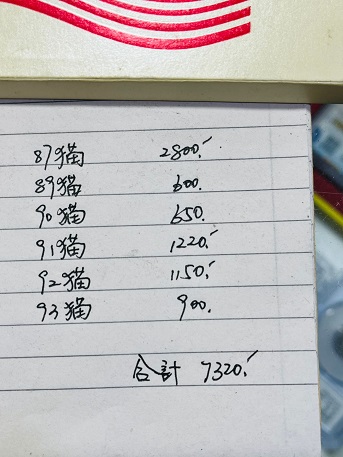 87猫 2800.
89猫 600.
90猫 650.
91猫 1220.
92猫 1150.
93猫 900.
合計 7320.